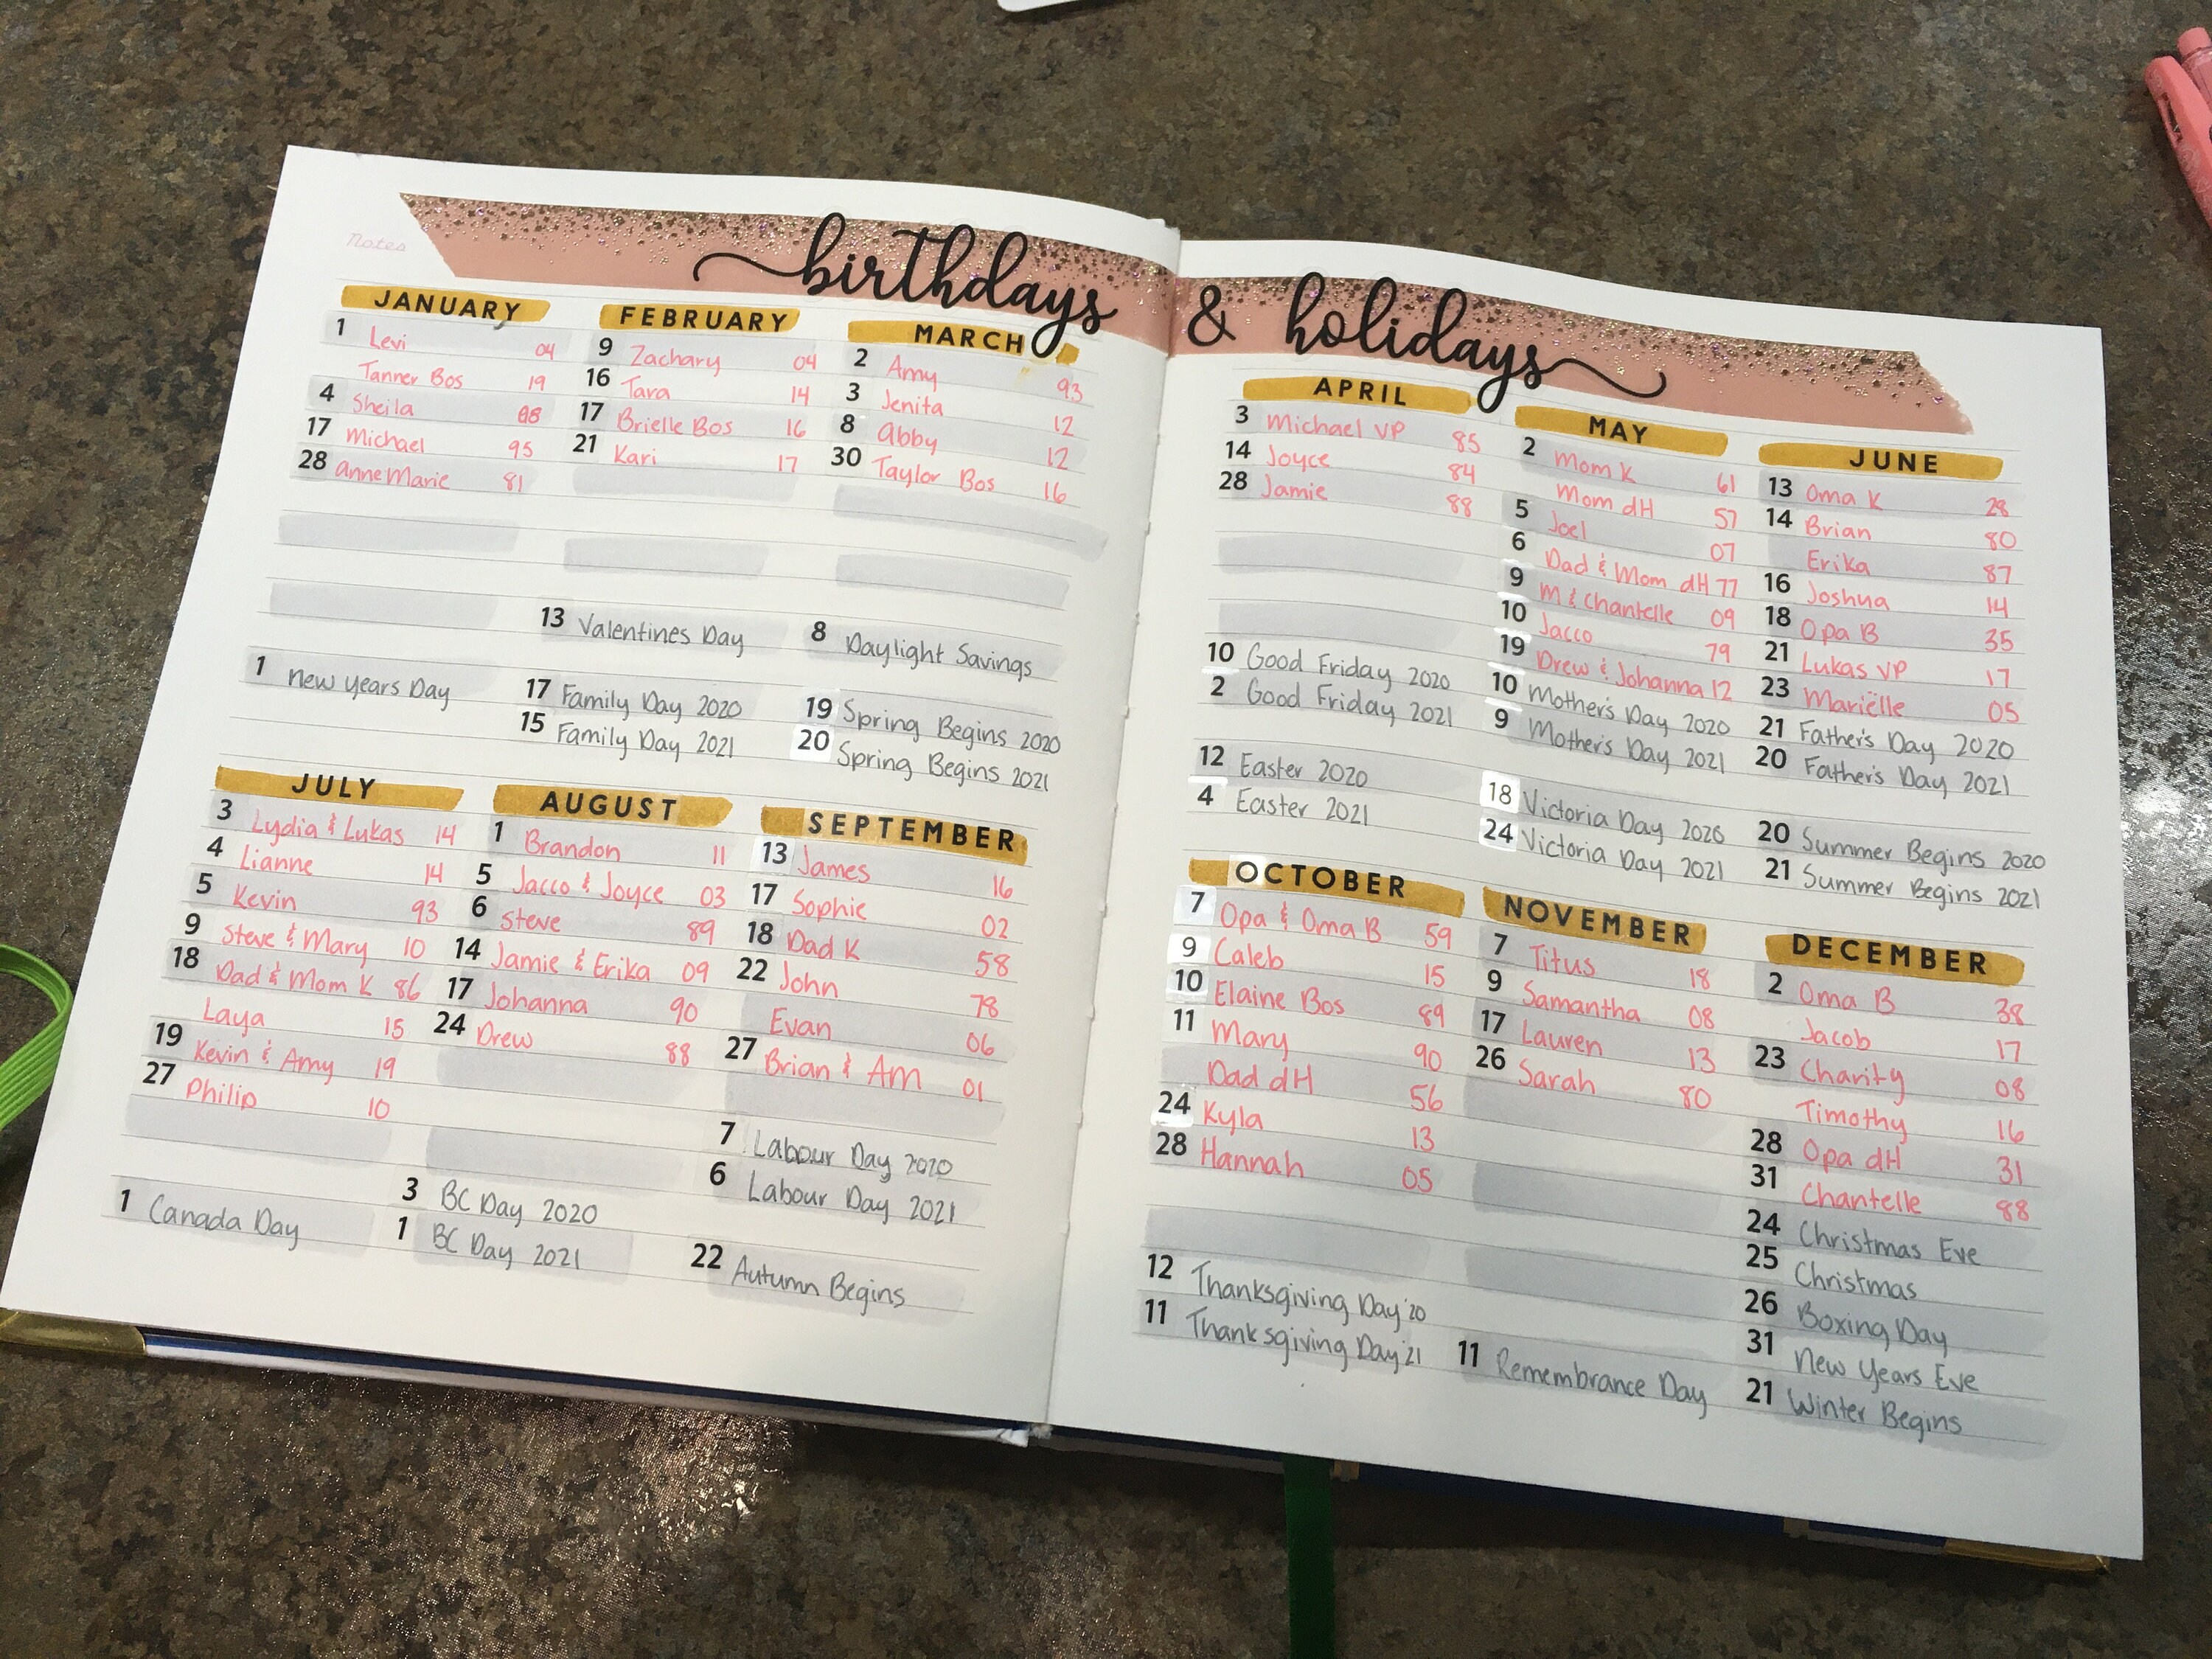 Notes
birthdays & holidays
JANUARY
1 Levi 04
Tanner Bos 19
4 Sheila 08
17 Michael 95
28 anneMarie 81
1 New years Day
FEBRUARY
9 Zachary 04
16 Tara 14
17 Brielle Bos 16
21 Kari 17
13 Valentines Day
17 Family Day 2020
15 Family Day 2021
MARCH
2 Amy 93
3 Jenita 12
8 Abby 12
30 Taylor Bos 16
8 Daylight Savings
19 Spring Begins 2020
20 Spring Begins 2021
APRIL
3 Michael VP 85
14 Joyce 84
28 Jamie 88
10 Good Friday 2020
2 Good Friday 2021
12 Easter 2020
4 Easter 2021
MAY
2 Mom K 61
Mom dH 57
5 Joel 07
6 Dad & Mom dH 77
9 M & Chantelle 09
10 Jacco 79
19 Drew & Johanna 12
10 Mother's Day 2020
9 Mother's Day 2021
18 Victoria Day 2020
24 Victoria Day 2021
JUNE
13 Oma K 28
14 Brian 80
Erika 87
16 Joshua 14
18 Opa B 35
21 Lukas VP 17
23 Mariëlle 05
21 Father's Day 2020
20 Father's Day 2021
20 Summer Begins 2020
21 Summer Begins 2021
JULY
3 Lydia & Lukas 14
4 Lianne 14
5 Kevin 93
9 Steve & Mary 10
18 Dad & Mom K 86
Laya 15
19 Kevin & Amy 19
27 Philip 10
1 Canada Day
AUGUST
1 Brandon 11
5 Jacco & Joyce 03
6 Steve 89
14 Jamie & Erika 09
17 Johanna 90
24 Drew 88
3 BC Day 2020
1 BC Day 2021
SEPTEMBER
13 James 16
17 Sophie 02
18 Dad K 58
22 John 78
Evan 06
27 Brian & AM 01
7 Labour Day 2020
6 Labour Day 2021
22 Autumn Begins
OCTOBER
7 Opa & Oma B 59
9 Caleb 15
10 Elaine Bos 89
11 Mary 90
Dad dH 56
24 Kyla 13
28 Hannah 05
12 Thanksgiving Day '20
11 Thanksgiving Day '21
NOVEMBER
7 Titus 18
9 Samantha 08
17 Lauren 13
26 Sarah 80
11 Remembrance Day
DECEMBER
2 Oma B 38
Jacob 17
23 Charity 08
Timothy 16
28 Opa dH 31
31 Chantelle 88
24 Christmas Eve
25 Christmas
26 Boxing Day
31 New Years Eve
21 Winter Begins